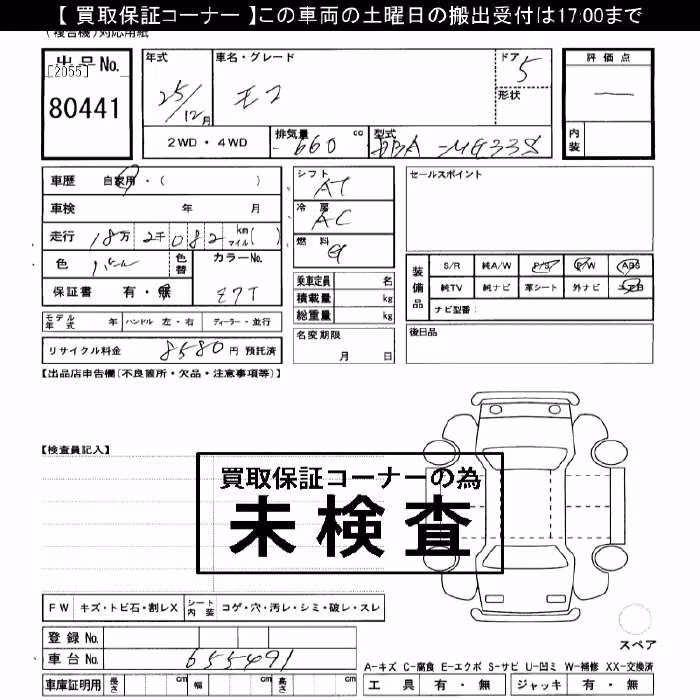 【 買取保証コーナー 】この車両の土曜日の搬出受付は17:00まで
(複合機)対応用紙
出品No.
[2055]
80441
年式
25/12月
車名・グレード
モコ
ドア
5
形状
評価点
内装
2WD・4WD
排気量
660 cc
型式
DBA-MG33S
車歴 自家用・( )
車検 年 月
走行 18万2千082 km マイル( )
色 パール
色替
カラーNo.
Z7T
保証書 有・無
モデル年式 年 ハンドル 左・右 ディーラー・並行
リサイクル料金 8580円 預託済
シフト
AT
冷房
AC
燃料
乗車定員 名
積載量 kg
総重量 kg
名変期限
月 日
セールスポイント
装備品
S/R 純A/W P/S P/W ABS
純TV 純ナビ 革シート 外ナビ エアB
ナビ型番:
後日品
【出品店申告欄(不良箇所・欠品・注意事項等)】
【検査員記入】
買取保証コーナーの為
未検査
FW キズ・トビ石・割レX シート内装 コゲ・穴・汚レ・シミ・破レ・スレ
登録No.
車台No. 655491
車庫証明用 長さ cm 幅 cm 高さ cm
スペア
A-キズ C-腐食 E-エクボ S-サビ U-凹ミ W-補修 XX-交換済
工具 有・無 ジャッキ 有・無